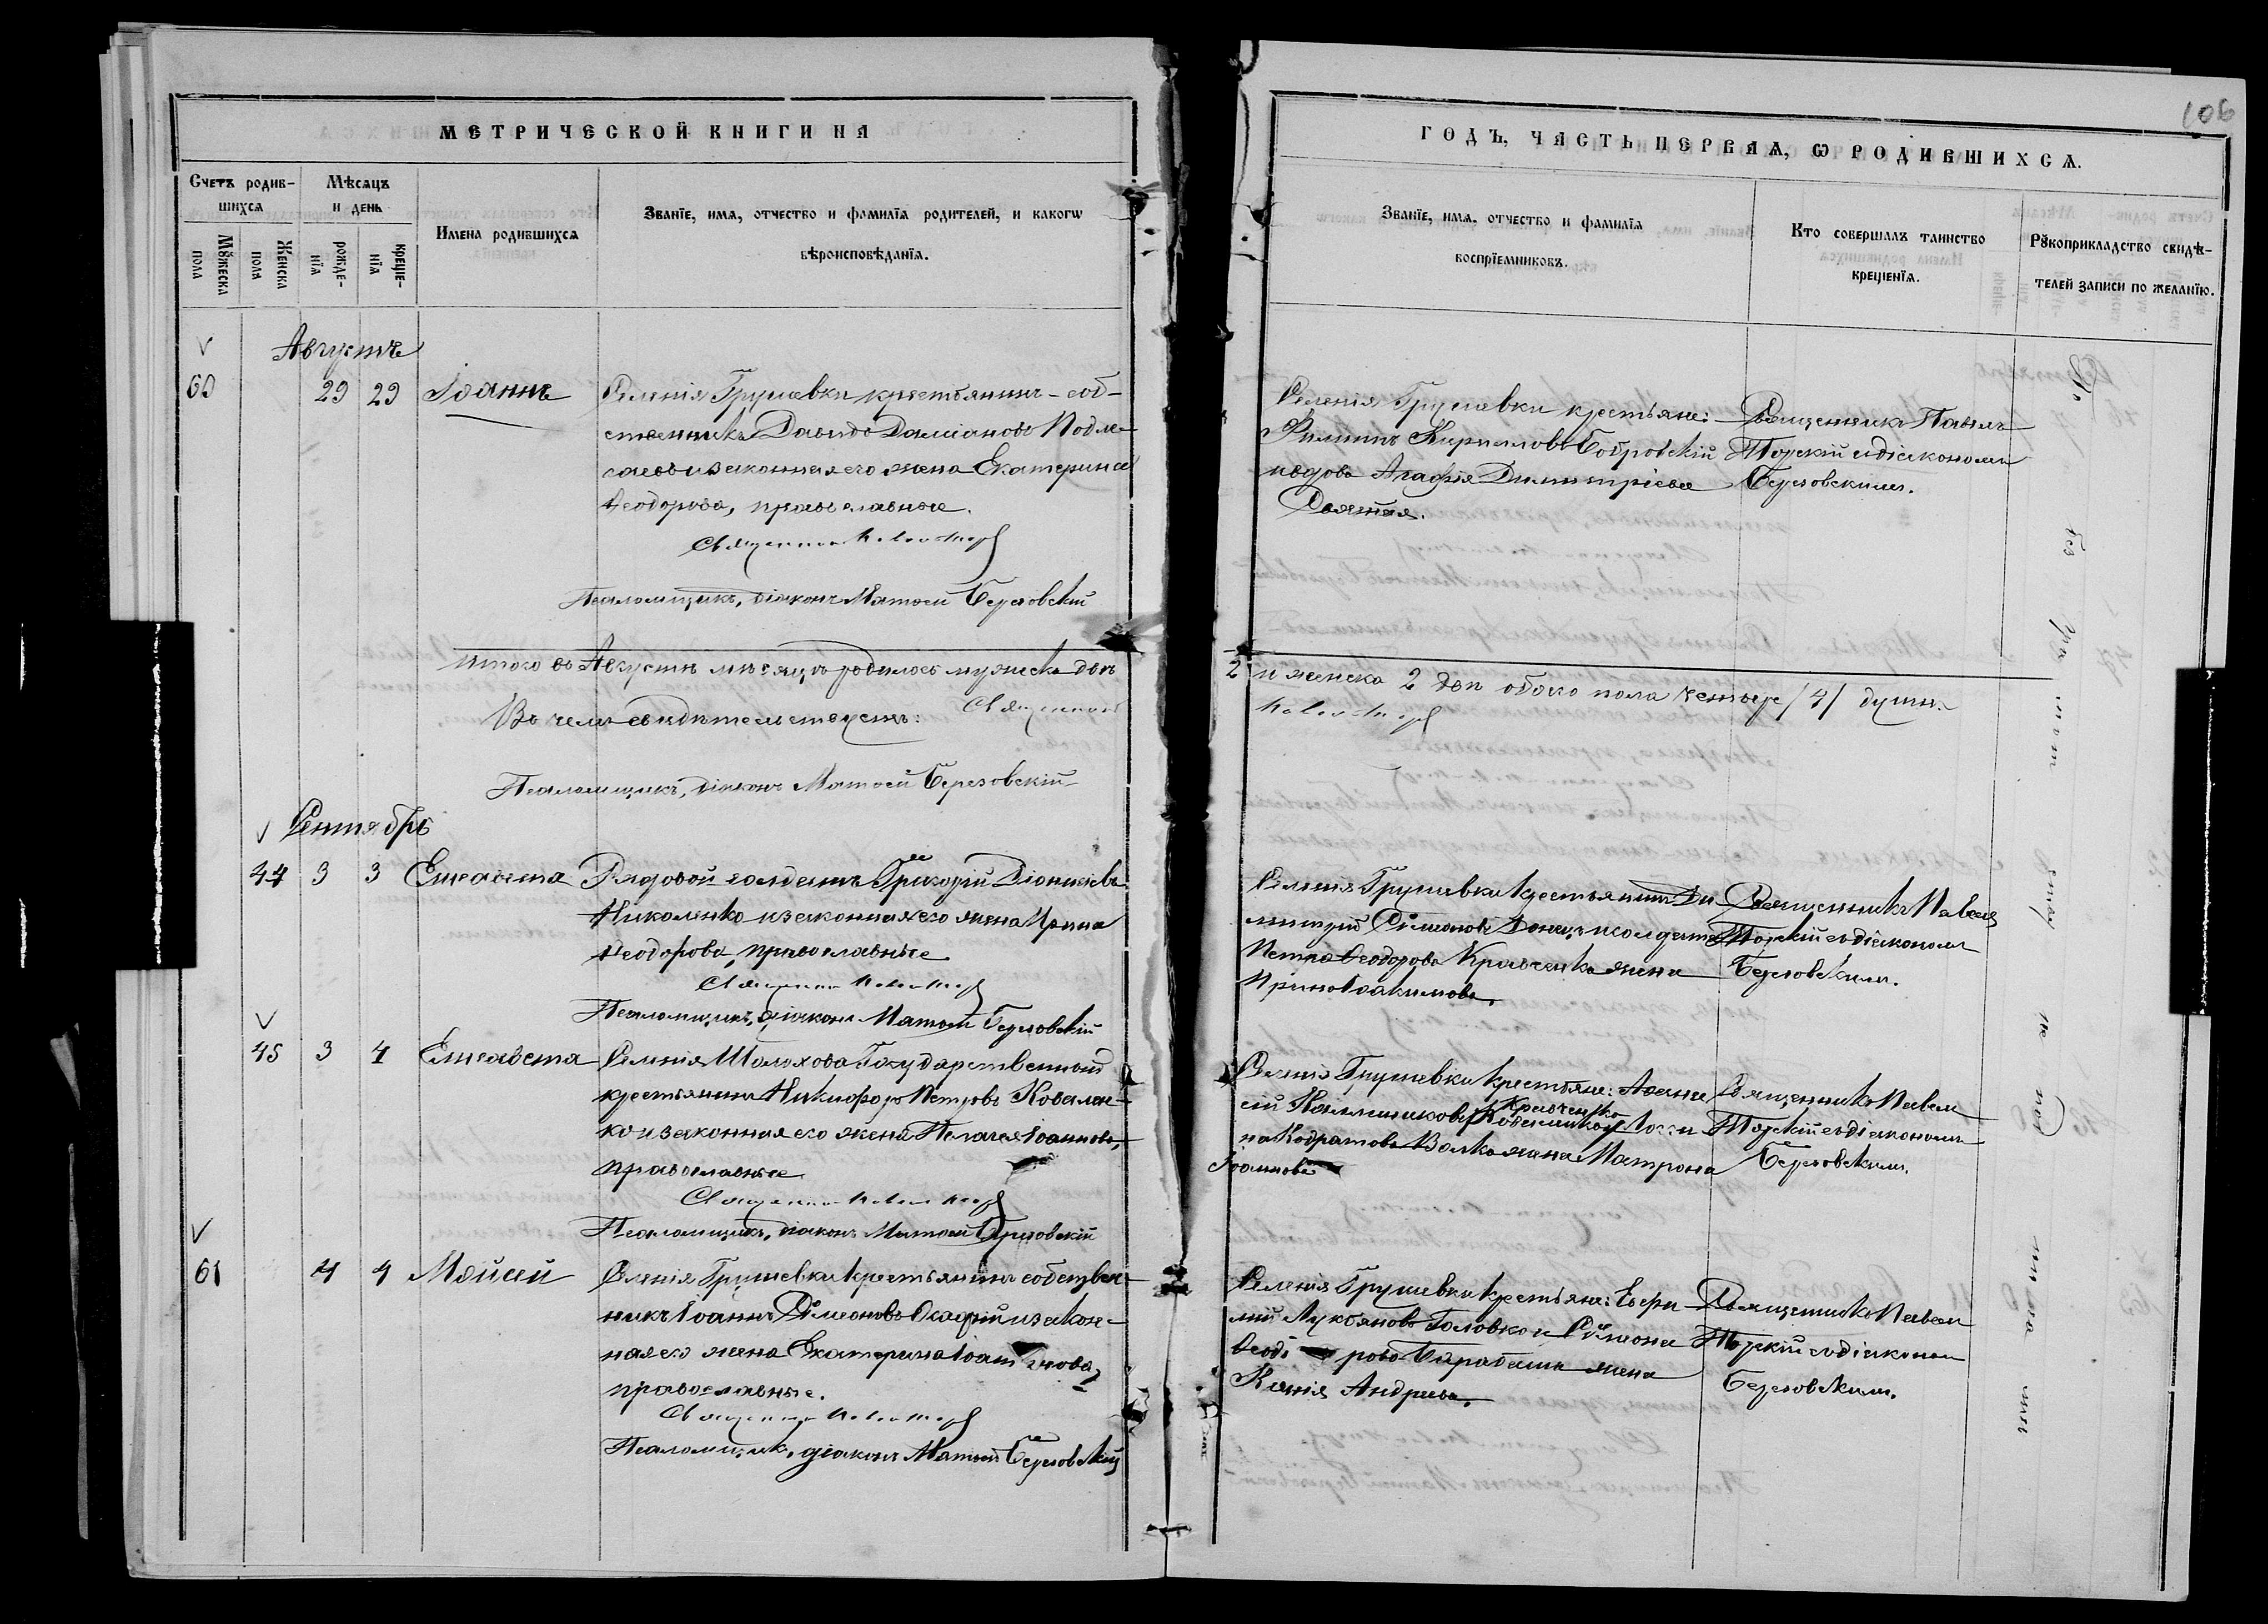 МЕТРИЧЕСКОЙ КНИГИ НА
Счетъ родив-
шихся
Мѣсяцъ
и день
Имена родившихся
Званїе, имя, отчество и фамилїа родителей, и какогω
вѣроисповѣданїя.
Мꙋжеска
пола
Женска
пола
рожде-
нїя
креще-
нїя
Августъ
60 29 29 Іоаннъ
Селенія Грушевки крестьянинъ-соб-
ственникъ Давидъ Даміановъ
и законная его жена Екатерина
Ѳеодорова, православные.
Священникъ
Псаломщикъ, діаконъ Матѳей Березовскій
Итого въ Августѣ мѣсяцѣ родилось мужеска двѣ
Въ чемъ свидѣтельствуемъ: Священникъ
Псаломщикъ, діаконъ Матѳей Березовскій
Сентябрь
44 3 3 Елисавета
Рядовой солдатъ Григорій Діонисіевъ
Николенко и законная его жена Ирина
Ѳеодорова, православные
Священникъ
Псаломщикъ, діаконъ Матѳей Березовскій
45 3 4 Елисавета
Селенія Шолохова Государственный
крестьянинъ Никифоръ Петровъ Ковален-
ко и законная его жена Пелагея Іоаннова,
православные
Священникъ
Псаломщикъ, діаконъ Матѳей Березовскій
61 4 4 Мойсей
Селенія Грушевки крестьянинъ собствен-
никъ Іоаннъ Сѵмеоновъ и закон-
ная его жена Екатерина Іоаннова,
православные.
Священникъ
Псаломщикъ, діаконъ Матѳей Березовскій
106
ГОДЪ, ЧАСТЬ ПЕРВАЯ, Ѡ РОДИВШИХСѦ.
Званїе, имя, отчество и фамилїя
воспрїемниковъ.
Кто совершалъ таинство
крещенїя.
Рꙋкоприкладство свидѣ-
телей записи по желанїю.
Селенія Грушевки крестьяне:
Филиппъ Кирилловъ Бобровскій
и вдова Агафія Димитріева
Священникъ Павелъ
Торскій съ діакономъ
Березовскимъ.
2 и женска 2 двѣ обоего пола четыре /4/ души.
Селенія Грушевки крестьянинъ Ди
митрій Сѵмеоновъ Донецъ и солдата
Петра Ѳеодорова Кравченка жена
Ирина Іоакимова.
Священникъ Павелъ
Торскій съ діакономъ
Березовскимъ.
Селенія Грушевки крестьяне: Аѳана
сій Кравченко
на Кодратова Волка жена Матрона
Іоаннова
Священникъ Павелъ
Торскій съ діакономъ
Березовскимъ.
Селенія Грушевки крестьяне: Евфи
мій Лукояновъ Головко и Сѵмеона
Ѳеодорова Барабаша жена
Ксенія Андреева.
Священникъ Павелъ
Торскій съ діакономъ
Березовскимъ.